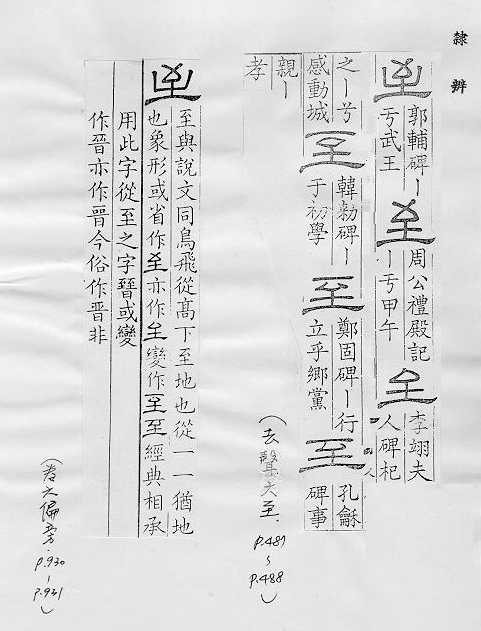 隸辨
𦤳郭輔碑丨
亏武王
至周公禮殿記
丨亏甲午
𡉉李翊夫
人碑杞
之丨兮
感動城
至韓勑碑丨
于初學
至鄭固碑丨行
立乎鄉黨
至孔龢
碑事
親丨
孝
(去聲六至.
P.487
~
P.488
)
至與說文同鳥飛從高下至地也從一一猶地
也象形或省作至亦作𡉉變作至至經典相承
用此字從至之字臸或變
作晉亦作晉今俗作晋非
(卷六偏旁.
P.930
-
P.931
)